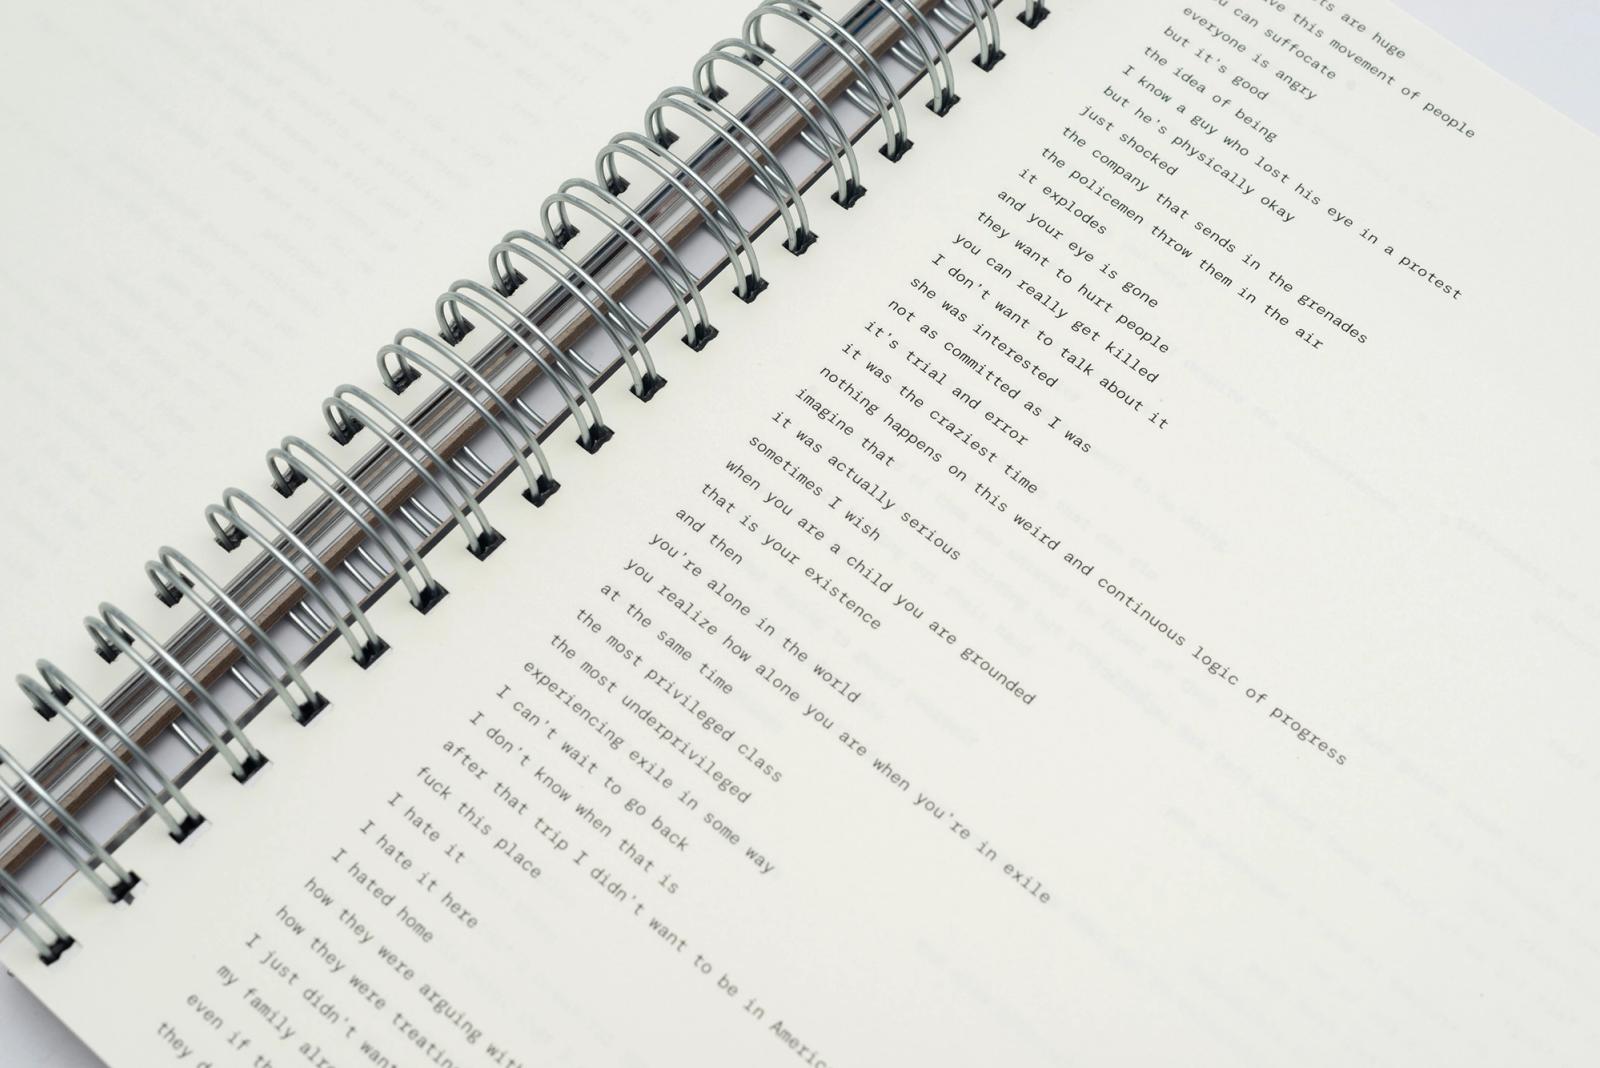 are huge
this movement of people
can suffocate
everyone is angry
but it's good
the idea of being
I know a guy who lost his eye in a protest
but he's physically okay
just shocked
the company that sends in the grenades
the policemen throw them in the air
it explodes
and your eye is gone
they want to hurt people
you can really get killed
I don't want to talk about it
she was interested
not as committed as I was
it's trial and error
it was the craziest time
nothing happens on this weird and continuous logic of progress
imagine that
it was actually serious
sometimes I wish
when you are a child you are grounded
that is your existence
and then
you're alone in the world
you realize how alone you are when you're in exile
at the same time
the most privileged class
the most underprivileged
experiencing exile in some way
I can't wait to go back
I don't know when that is
after that trip I didn't want to be in Americ
fuck this place
I hate it
I hate it here
I hated home
how they were arguing with
how they were treating
I just didn't want
my family alre
even if the
they d